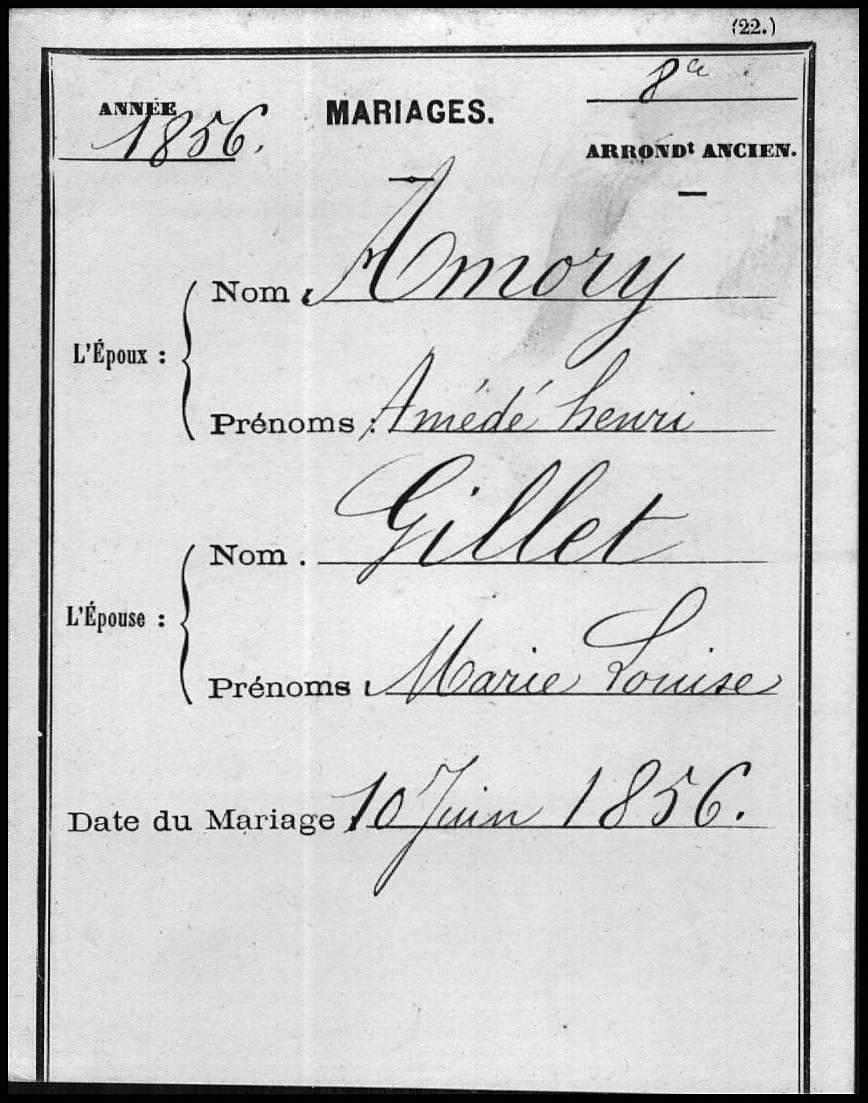 (22.)
ANNÉE
1856.
MARIAGES.
8e
ARRONDt ANCIEN.
L'Époux :
Nom : Amory
Prénoms : Amédé henri
L'Épouse :
Nom . Gillet
Prénoms : Marie Louise
Date du Mariage : 10 Juin 1856.